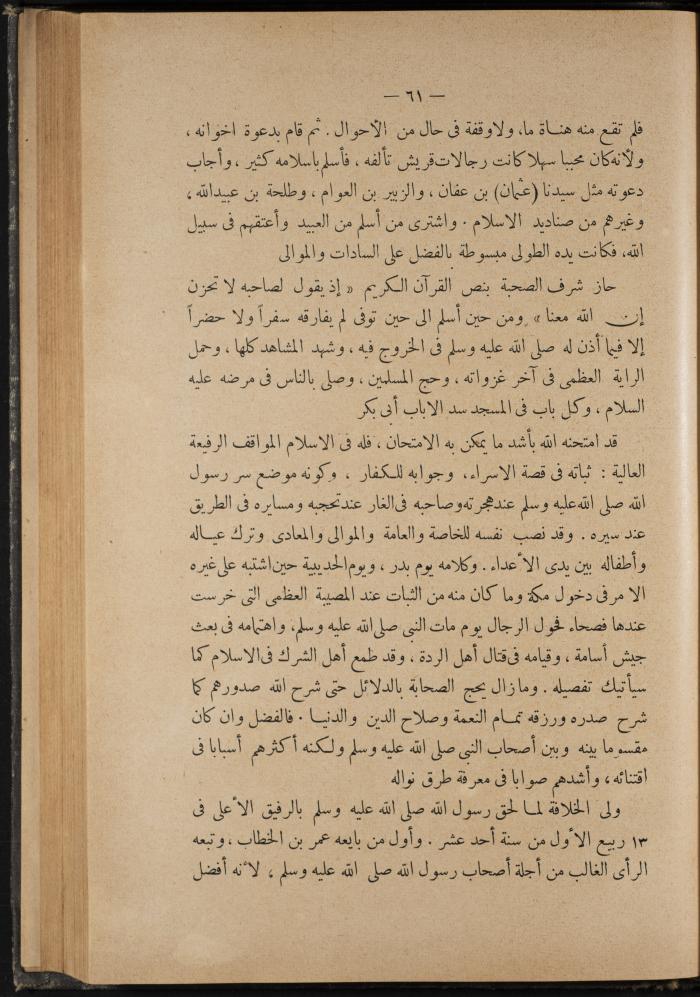 — ٦١ —
فلم تقع منه هناة ما، ولاوقفة فى حال من الأحوال . ثم قام بدعوة اخوانه ،
ولأنه كان محببا سهلا كانت رجالات قريش تألفه ، فأسلم باسلامه كثير ، وأجاب
دعوته مثل سيدنا (عثمان) بن عفان ، والزبير بن العوام ، وطلحة بن عبيدالله ،
وغيرهم من صناديد الاسلام . واشترى من أسلم من العبيد وأعتقهم فى سبيل
الله، فكانت يده الطولى مبسوطة بالفضل على السادات والموالى
حاز شرف الصحبة بنص القرآن الكريم « إذ يقول لصاحبه لا تحزن
إن الله معنا » ومن حين أسلم الى حين توفى لم يفارقه سفراً ولا حضراً
إلا فيما أذن له صلى الله عليه وسلم فى الخروج فيه ، وشهد المشاهد كلها ، وحمل
الراية العظمى فى آخر غزواته ، وحج المسلمين ، وصلى بالناس فى مرضه عليه
السلام ، وكل باب فى المسجد سد الاباب أبى بكر
قد امتحنه الله بأشد ما يمكن به الامتحان ، فله فى الاسلام المواقف الرفيعة
العالية : ثباته فى قصة الاسراء، وجوابه للكفار ، وكونه موضع سر رسول
الله صلى الله عليه وسلم عند هجرته وصاحبه فى الغار عند تحجبه ومسايره فى الطريق
عند سيره . وقد نصب نفسه للخاصة والعامة والموالى والمعادى وترك عياله
وأطفاله بين يدى الأعداء . وكلامه يوم بدر ، ويوم الحديبية حين اشتبه على غيره
الامر فى دخول مكة وما كان منه من الثبات عند المصيبة العظمى التى خرست
عندها فصحاء فحول الرجال يوم مات النبى صلى الله عليه وسلم، واهتمامه فى بعث
جيش أسامة ، وقيامه فى قتال أهل الردة ، وقد طمع أهل الشرك فى الاسلام كما
سيأتيك تفصيله . ومازال يحج الصحابة بالدلائل حتى شرح الله صدورهم كما
شرح صدره ورزقه تمام النعمة وصلاح الدين والدنيا . فالفضل وان كان
مقسوما بينه وبين أصحاب النبى صلى الله عليه وسلم ولكنه أكثرهم أسبابا فى
اقتنائه ، وأشدهم صوابا فى معرفة طرق نواله
ولى الخلافة لما لحق رسول الله صلى الله عليه وسلم بالرفيق الأعلى فى
١٣ ربيع الأول من سنة أحد عشر . وأول من بايعه عمر بن الخطاب ، وتبعه
الرأى الغالب من أجلة أصحاب رسول الله صلى الله عليه وسلم ، لأنه أفضل